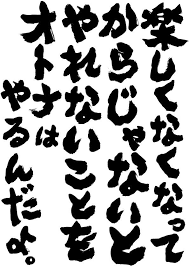 楽しくなくなって
からじゃないと
やれないことを
オトナは
やるんだよ。